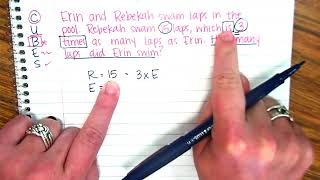 C Erin and Rebekah swam laps in the
U pool. Rebekah swam 15 laps, which is 3
B times as many laps as Erin. How many
E laps did Erin swim?
S
R = 15 = 3 x E
E =